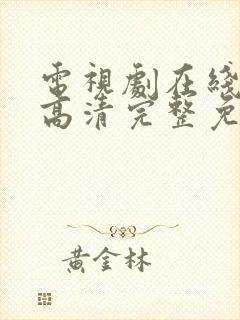 電視劇在綫
高清完整免
黃金林